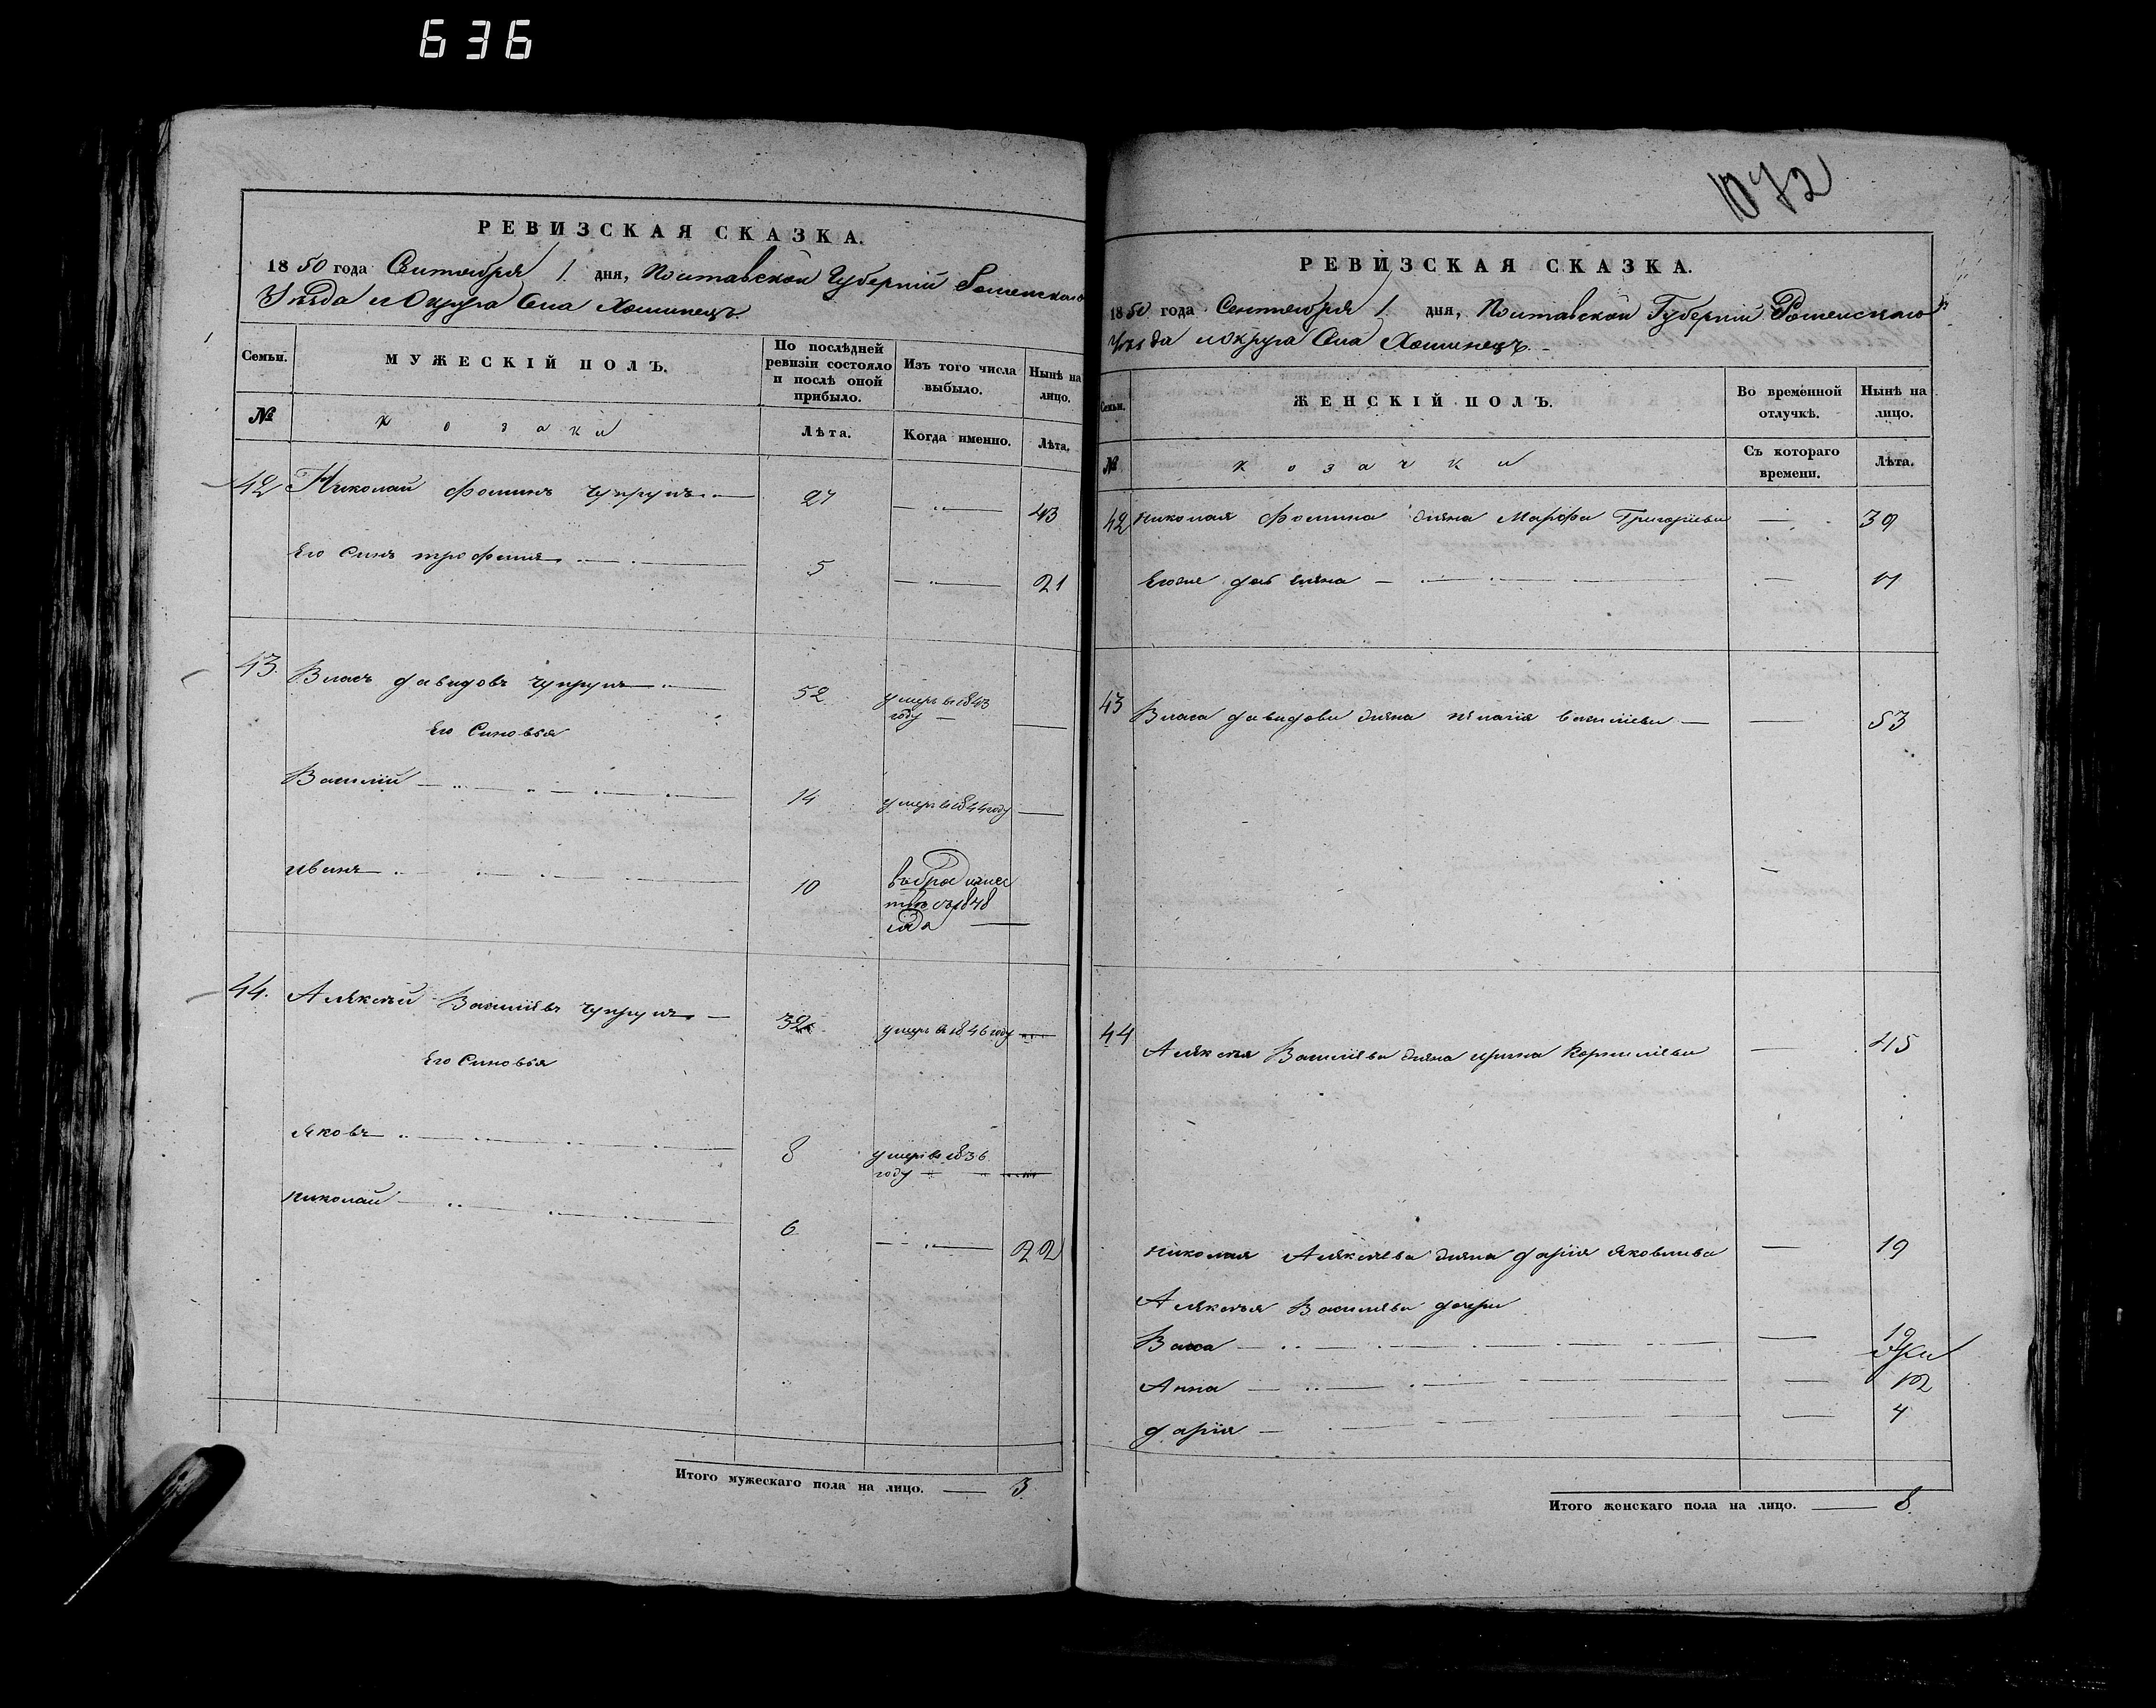 636
РЕВИЗСКАЯ СКАЗКА.
1850 года Сентября 1 дня, Полтавской Губернии Роменского
Уѣзда и Округа Села Хоминецъ.
Семьи.
МУЖЕСКІЙ ПОЛЪ.
По послѣдней ревизіи состояло и послѣ оной прибыло.
Изъ того числа выбыло.
Нынѣ на лицо.
№
козаки
Лѣта.
Когда именно.
Лѣта.
42 Николай Фоминъ Чупрунъ 27 43
Его Синъ трофимъ 5 21
43. Власъ давидовъ Чупрунъ 52 умеръ въ 1843 году
Его Синовья
Василій 14 умеръ въ 1844 году
иванъ 10 съ 1848 года
44. Алѣксѣй Василіевъ Чупрунъ 32 умеръ въ 1846 году
Его Синовья
Яковъ 8 умеръ въ 1836 году
николай 6 22
Итого мужескаго пола на лицо. 3.
1072
РЕВИЗСКАЯ СКАЗКА.
1850 года Сентября 1 дня, Полтавской Губерніи Роменского
Уѣзда и Округа Села Хоминецъ.
Семьи.
ЖЕНСКІЙ ПОЛЪ.
Во временной отлучкѣ.
Нынѣ на лицо.
№
козачки
Съ котораго времени.
Лѣта.
42 николая Фомина жена Марфа Григоріева 39
43 Власа давидова жена пелагія василіева 53
44 Алѣксѣя Василіева жена ирина Корниліева 45
николая Алѣксѣева жена дарія Яковлева 19
Алѣксѣя Василіева дочери
Васса 19
Анна 12
дарія 4
Итого женскаго пола на лицо. 8.